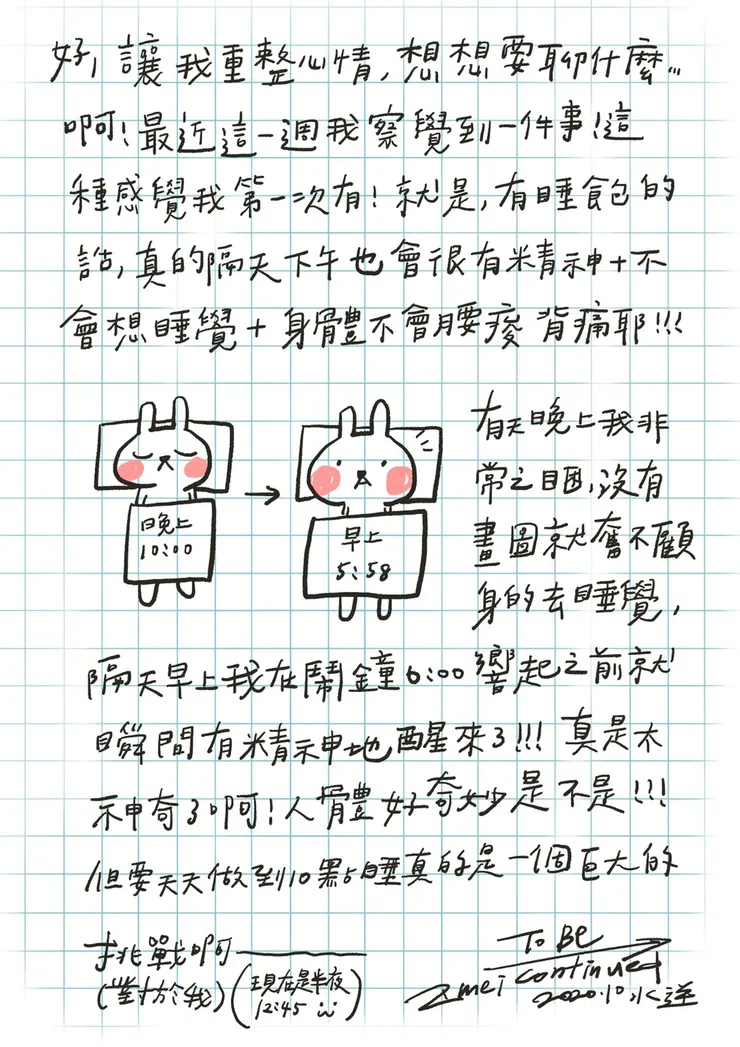 好,讓我重整心情,想想要聊什麼...
啊!最近這一週我察覺到一件事!這
種感覺我第一次有!就是,有睡飽的
話,真的隔天下午也會很有精神+不
會想睡覺+身體不會腰痠背痛耶!!!
有天晚上我非
常之睏,沒有
畫圖就奮不顧
身的去睡覺,
晚上
10:00
→
早上
5:58
隔天早上我在鬧鐘6:00響起之前就
瞬間有精神地醒來了!!!真是太
神奇了啊!人體好奇妙是不是!!!
但要天天做到10點睡真的是一個巨大的
挑戰啊
(對於我)
(現在是半夜
12:45 ü)
To Be
continued
2mei
2020.10 水逆